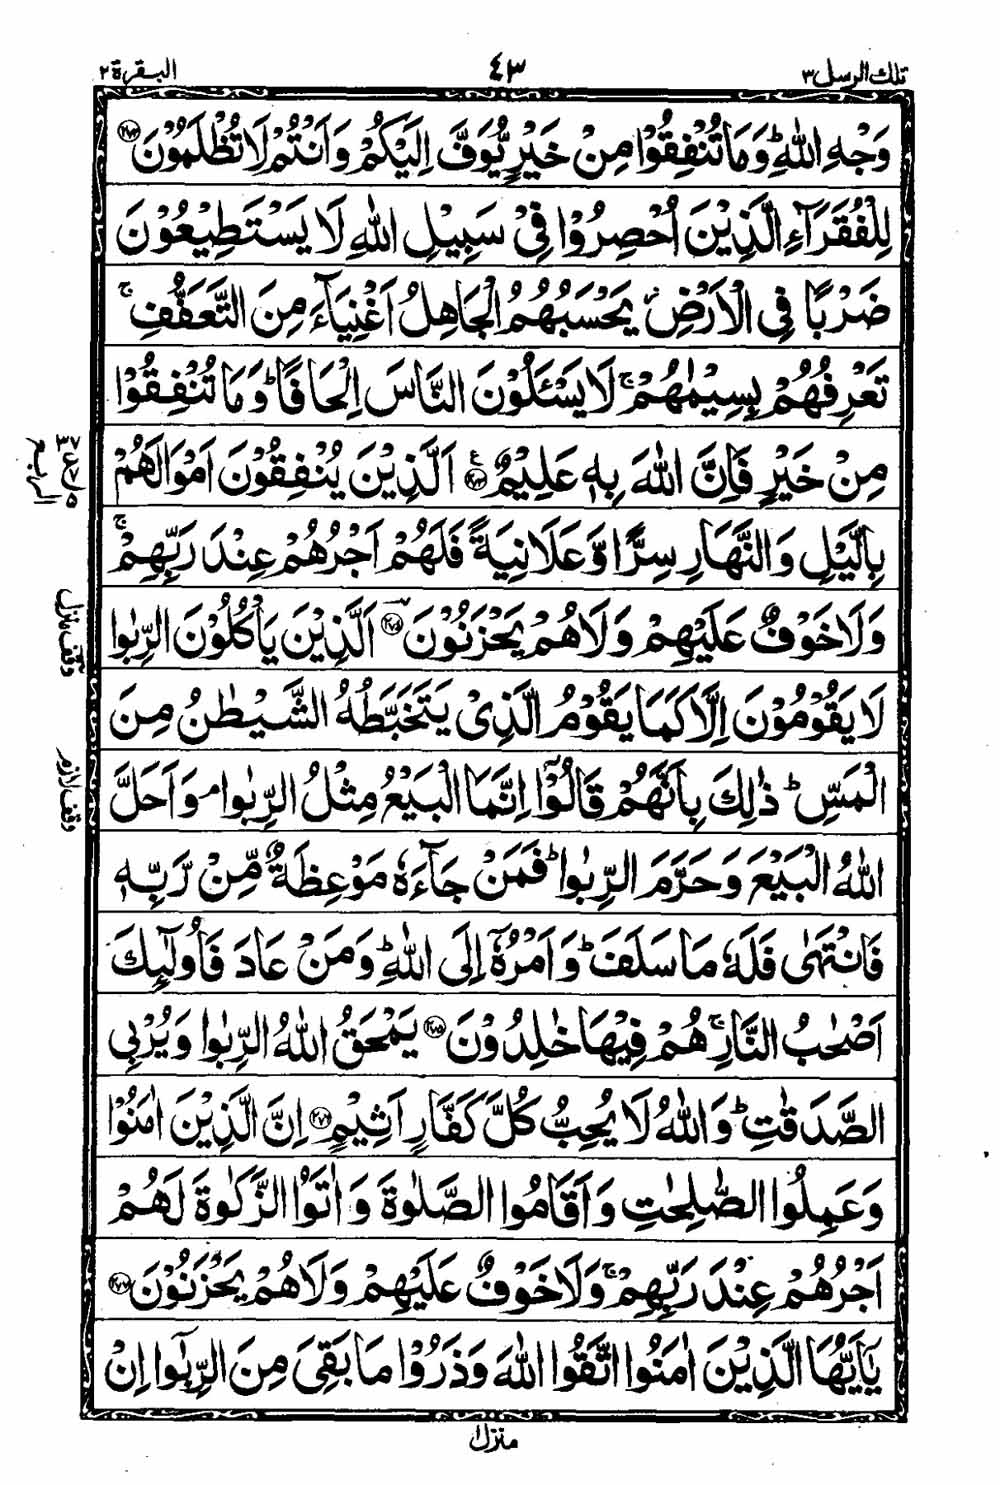 تلك الرسل ٣ ٤٣ البقرة ٢
وَجْهِ اللّٰهِ ؕ وَمَا تُنْفِقُوْا مِنْ خَيْرٍ يُّوَفَّ اِلَيْكُمْ وَاَنْتُمْ لَا تُظْلَمُوْنَ ﴿۲۷۲﴾
لِلْفُقَرَآءِ الَّذِيْنَ اُحْصِرُوْا فِيْ سَبِيْلِ اللّٰهِ لَا يَسْتَطِيْعُوْنَ
ضَرْبًا فِي الْاَرْضِ ؗ يَحْسَبُهُمُ الْجَاهِلُ اَغْنِيَآءَ مِنَ التَّعَفُّفِ ۚ
تَعْرِفُهُمْ بِسِيْمٰهُمْ ۚ لَا يَسْـَٔلُوْنَ النَّاسَ اِلْحَافًا ؕ وَمَا تُنْفِقُوْا
مِنْ خَيْرٍ فَاِنَّ اللّٰهَ بِهٖ عَلِيْمٌ ﴿۲۷۳﴾ ع اَلَّذِيْنَ يُنْفِقُوْنَ اَمْوَالَهُمْ
بِالَّيْلِ وَالنَّهَارِ سِرًّا وَّعَلَانِيَةً فَلَهُمْ اَجْرُهُمْ عِنْدَ رَبِّهِمْ ۚ
وَلَا خَوْفٌ عَلَيْهِمْ وَلَا هُمْ يَحْزَنُوْنَ ﴿۲۷۴﴾ اَلَّذِيْنَ يَاْكُلُوْنَ الرِّبٰوا
لَا يَقُوْمُوْنَ اِلَّا كَمَا يَقُوْمُ الَّذِيْ يَتَخَبَّطُهُ الشَّيْطٰنُ مِنَ
الْمَسِّ ؕ ذٰلِكَ بِاَنَّهُمْ قَالُوْٓا اِنَّمَا الْبَيْعُ مِثْلُ الرِّبٰوا ۘ وَاَحَلَّ
اللّٰهُ الْبَيْعَ وَحَرَّمَ الرِّبٰوا ؕ فَمَنْ جَآءَهٗ مَوْعِظَةٌ مِّنْ رَّبِّهٖ
فَانْتَهٰى فَلَهٗ مَا سَلَفَ ؕ وَاَمْرُهٗٓ اِلَى اللّٰهِ ؕ وَمَنْ عَادَ فَاُولٰٓئِكَ
اَصْحٰبُ النَّارِ ۚ هُمْ فِيْهَا خٰلِدُوْنَ ﴿۲۷۵﴾ يَمْحَقُ اللّٰهُ الرِّبٰوا وَيُرْبِي
الصَّدَقٰتِ ؕ وَاللّٰهُ لَا يُحِبُّ كُلَّ كَفَّارٍ اَثِيْمٍ ﴿۲۷۶﴾ اِنَّ الَّذِيْنَ اٰمَنُوْا
وَعَمِلُوا الصّٰلِحٰتِ وَاَقَامُوا الصَّلٰوةَ وَاٰتَوُا الزَّكٰوةَ لَهُمْ
اَجْرُهُمْ عِنْدَ رَبِّهِمْ ۚ وَلَا خَوْفٌ عَلَيْهِمْ وَلَا هُمْ يَحْزَنُوْنَ ﴿۲۷۷﴾
يٰٓاَيُّهَا الَّذِيْنَ اٰمَنُوا اتَّقُوا اللّٰهَ وَذَرُوْا مَا بَقِيَ مِنَ الرِّبٰٓوا اِنْ
الرابع
وقف منزل
وقف لازم
منزل ١